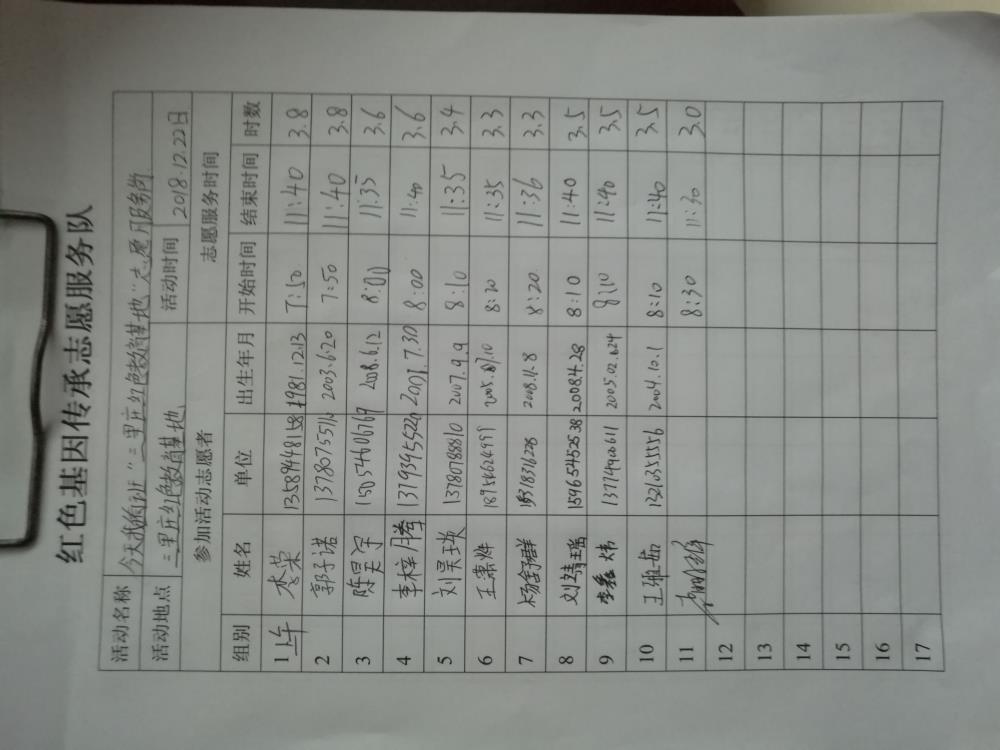 红色基因传承志愿服务队
活动名称 今天我的讲"三里庄红色教育基地"志愿服务岗
活动地点 三里庄红色教育基地 活动时间 2018.12.22日
参加活动志愿者 志愿服务时间
组别 姓名 单位 出生年月 开始时间 结束时间 时数
1 上午 李荣 13589448158 1981.12.13 7:50 11:40 3.8
2 郭子诺 2003.6.20 7:50 11:40 3.8
3 陈昊宇 15054606769 2008.6.12 8:00 11:35 3.6
4 李梓腾 2007.7.30 8:00 11:40 3.6
5 刘昊 13780788810 2007.9.9 8:10 11:35 3.4
6 王萧烨 18954624999 2005.07.10 8:20 11:35 3.3
7 杨舒群 2008.11.8 8:20 11:36 3.3
8 刘靖瑶 15965452538 2008.4.28 8:10 11:40 3.5
9 李鑫炜 8:10 11:40 3.5
10 王雅茹 13210355556 2004.10.1 8:10 11:40 3.5
11 8:30 11:30 3.0
12
13
14
15
16
17